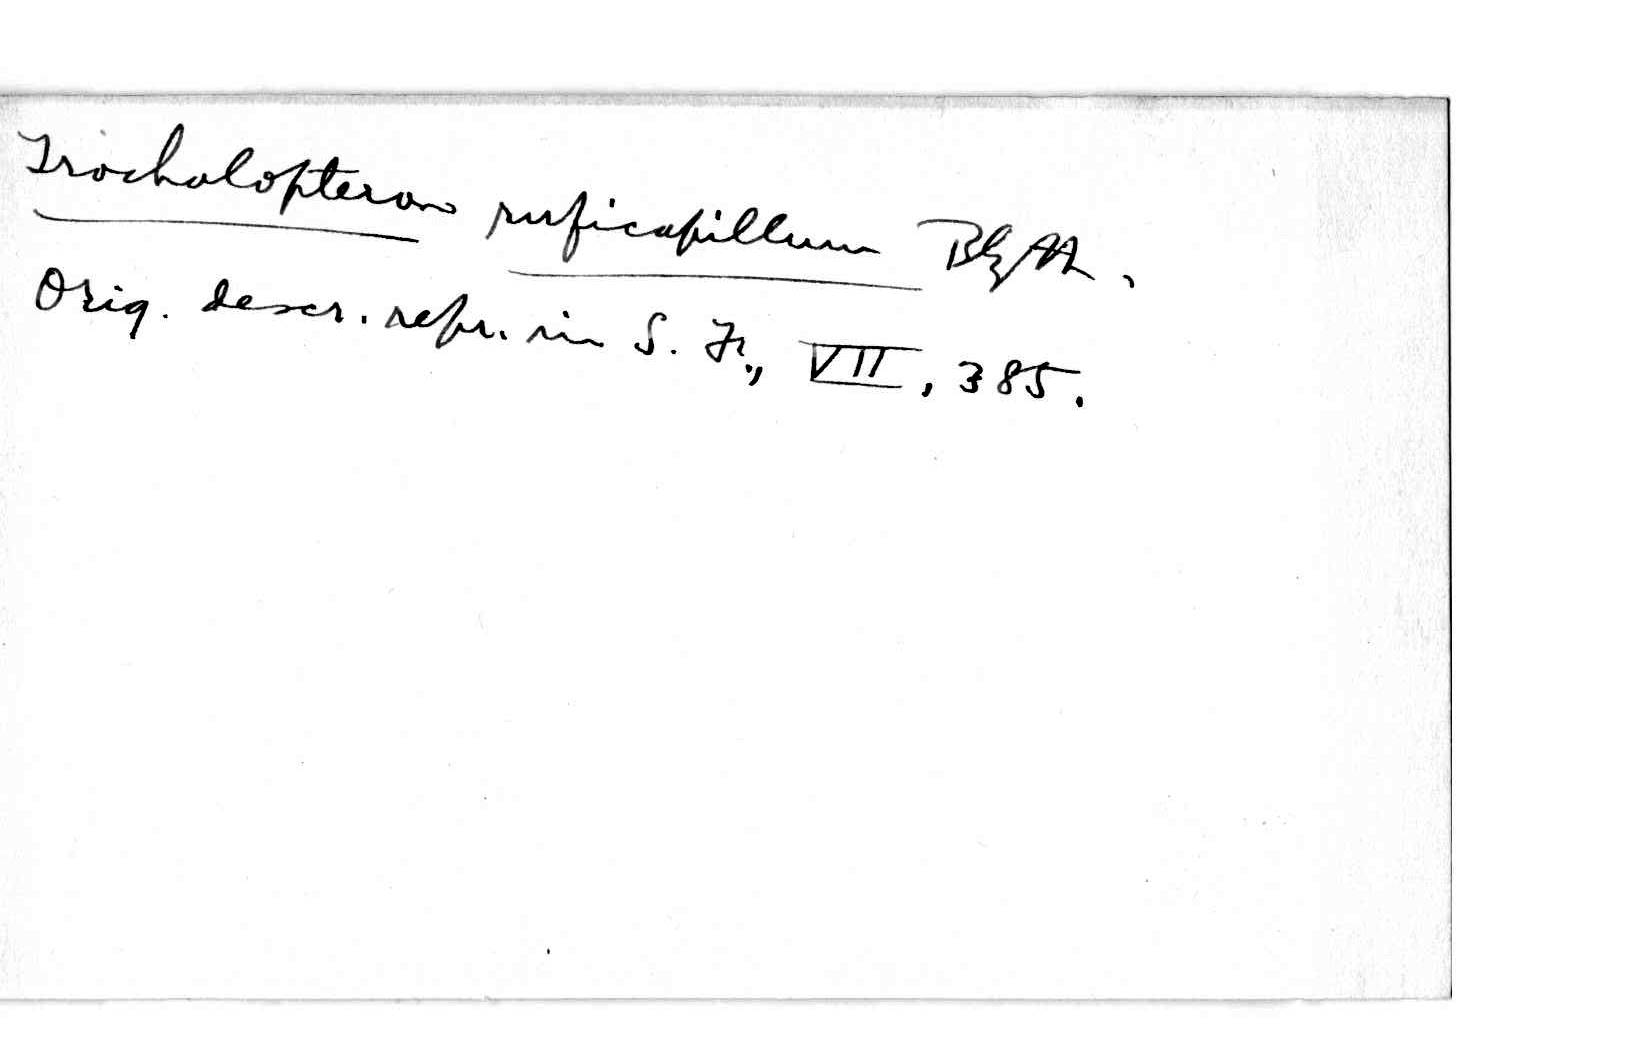 Trochalopteron ruficapillum Blyth.
Orig. descr. repr. in S. F., VII, 385.